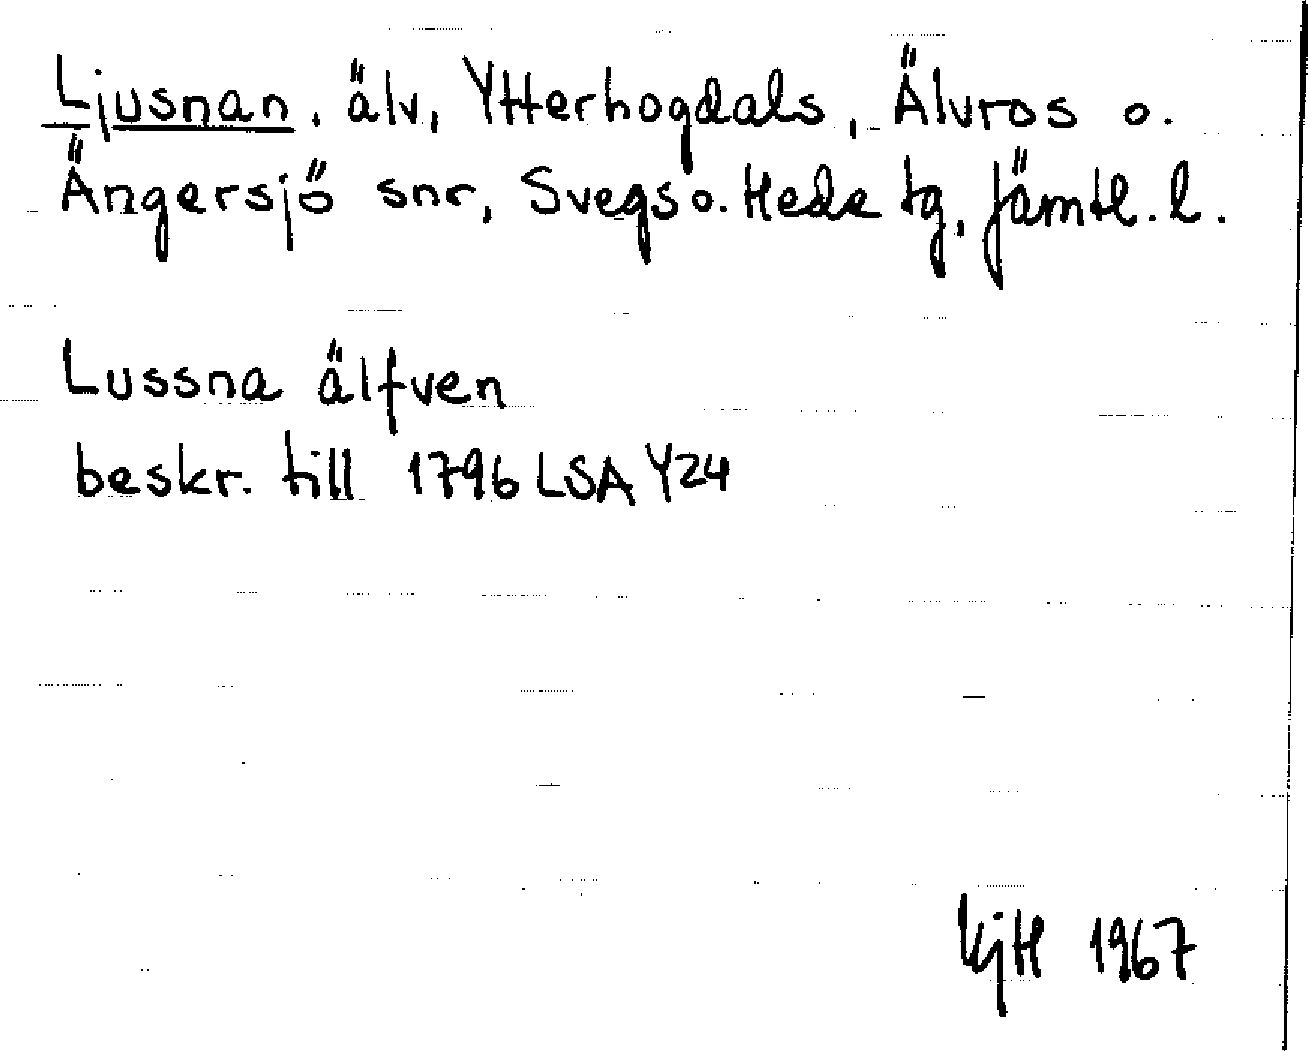 Ljusnan, älv, Ytterhogdals, Älvros o.
Ängersjö snr, Svegs o. Hede tg, Jämtl. l.
Lussna älfven
beskr. till 1796 LSA Y24
KjH 1967